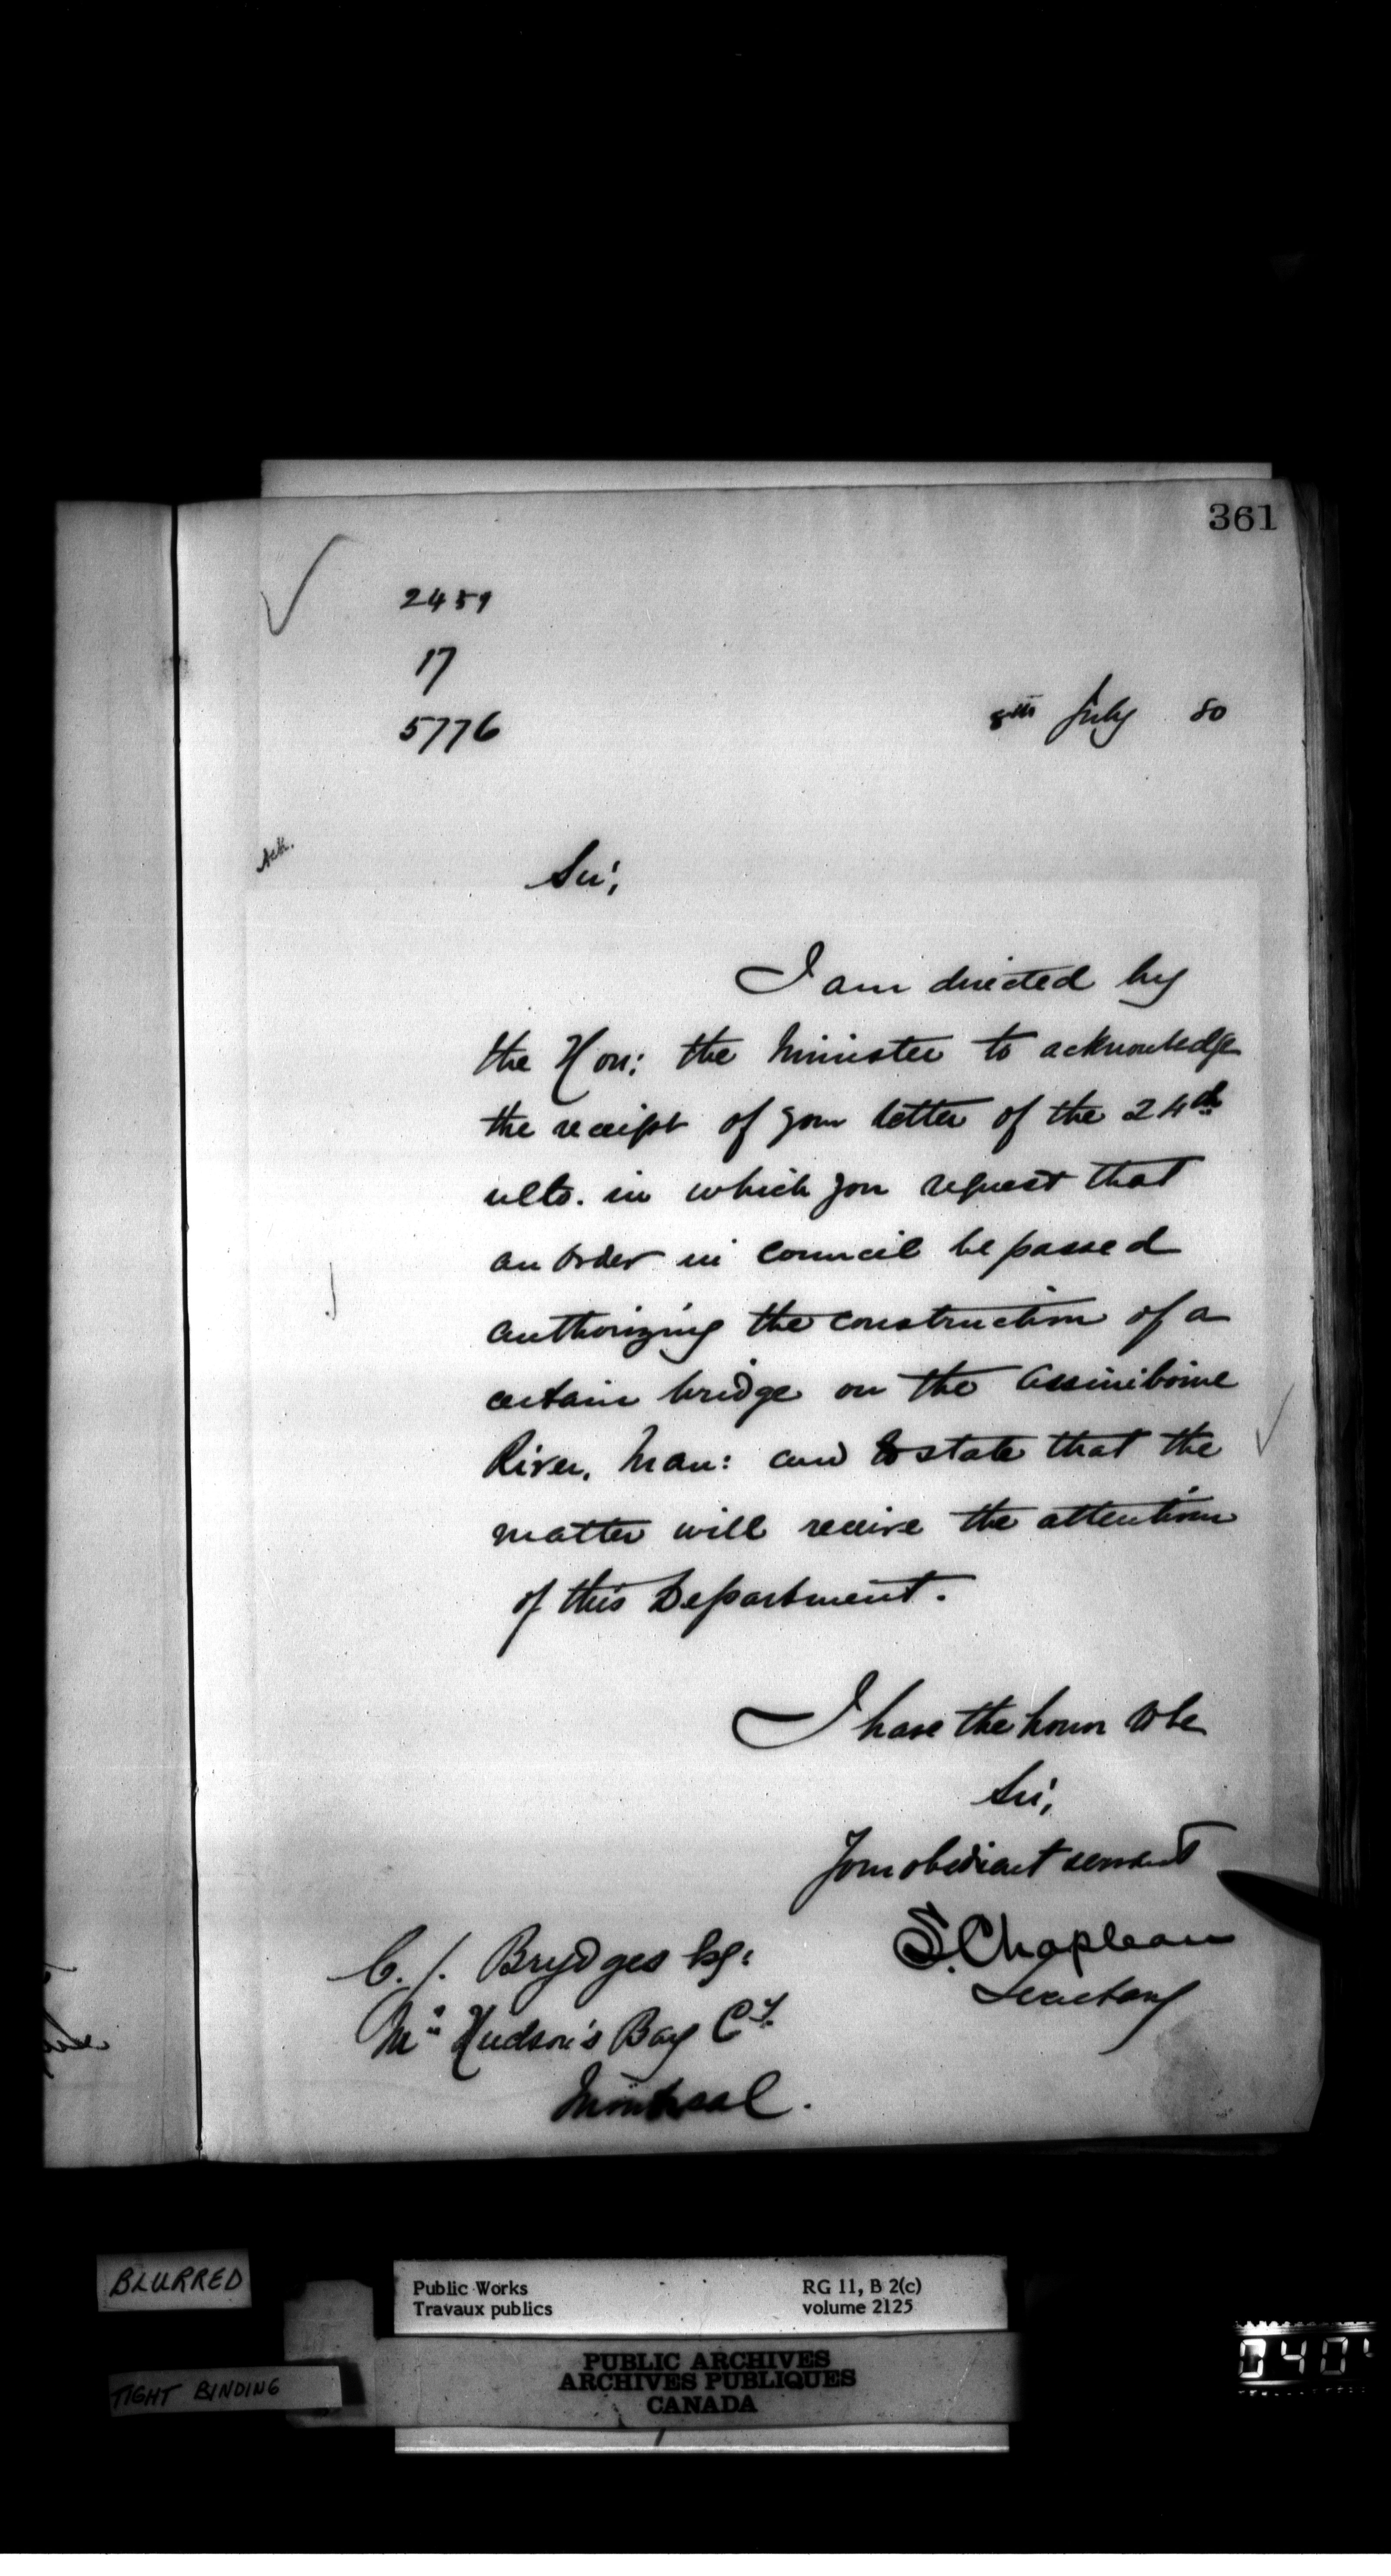 361
2459
17
5776
8th July 80
Ack.
Sir,
I am directed by
the Hon: the Minister to acknowledge
the receipt of your letter of the 24th
ulto. in which you request that
an Order in Council be passed
authorizing the construction of a
certain bridge on the Assiniboine
River, Man: and to state that the
matter will receive the attention
of this Department.
I have the honor to be
Sir,
Your obedient servant
S. Chapleau
Secretary
C. J. Brydges Esq:
Hudson's Bay Cy.
Montreal.
BLURRED
TIGHT BINDING
Public Works RG 11, B 2(c)
Travaux publics volume 2125
PUBLIC ARCHIVES
ARCHIVES PUBLIQUES
CANADA